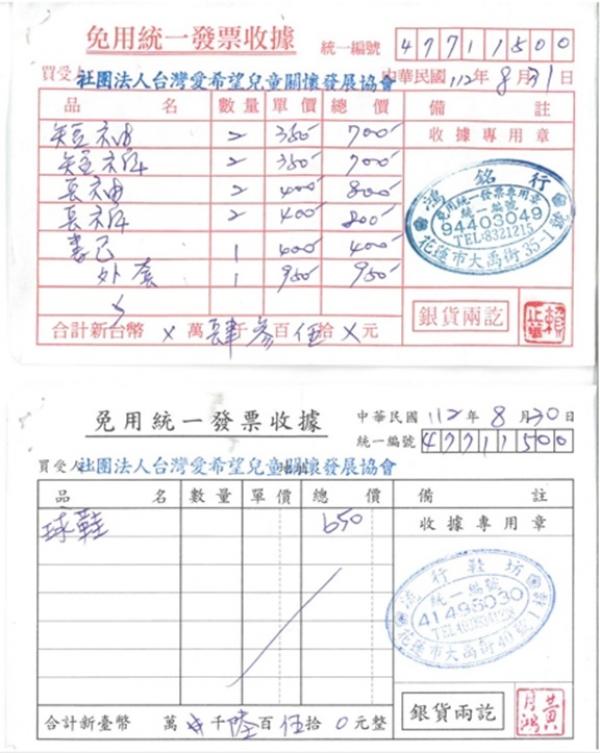 免用統一發票收據
統一編號 47711500
買受人 社團法人台灣愛希望兒童關懷發展協會 中華民國112年8月31日
品名 數量 單價 總價 備註
短袖 2 350 700 收據專用章
短褲 2 350 700
長袖 2 400 800
長褲 2 400 800
書包 1 400 400
外套 1 950 950
鴻銘行
免用統一發票專用章
統一編號
94403049
TEL:8321215
花蓮市大禹街35-1號
合計新台幣 X 萬 肆 千 參 百 伍 拾 X 元
銀貨兩訖
賴
免用統一發票收據
中華民國112年8月30日
統一編號 47711500
買受人 社團法人台灣愛希望兒童關懷發展協會
品名 數量 單價 總價 備註
球鞋 650 收據專用章
流行鞋坊
統一編號
41495030
花蓮市大禹街40號1
合計新臺幣 萬 千 陸 百 伍 拾 0 元整
銀貨兩訖
黃月鴻